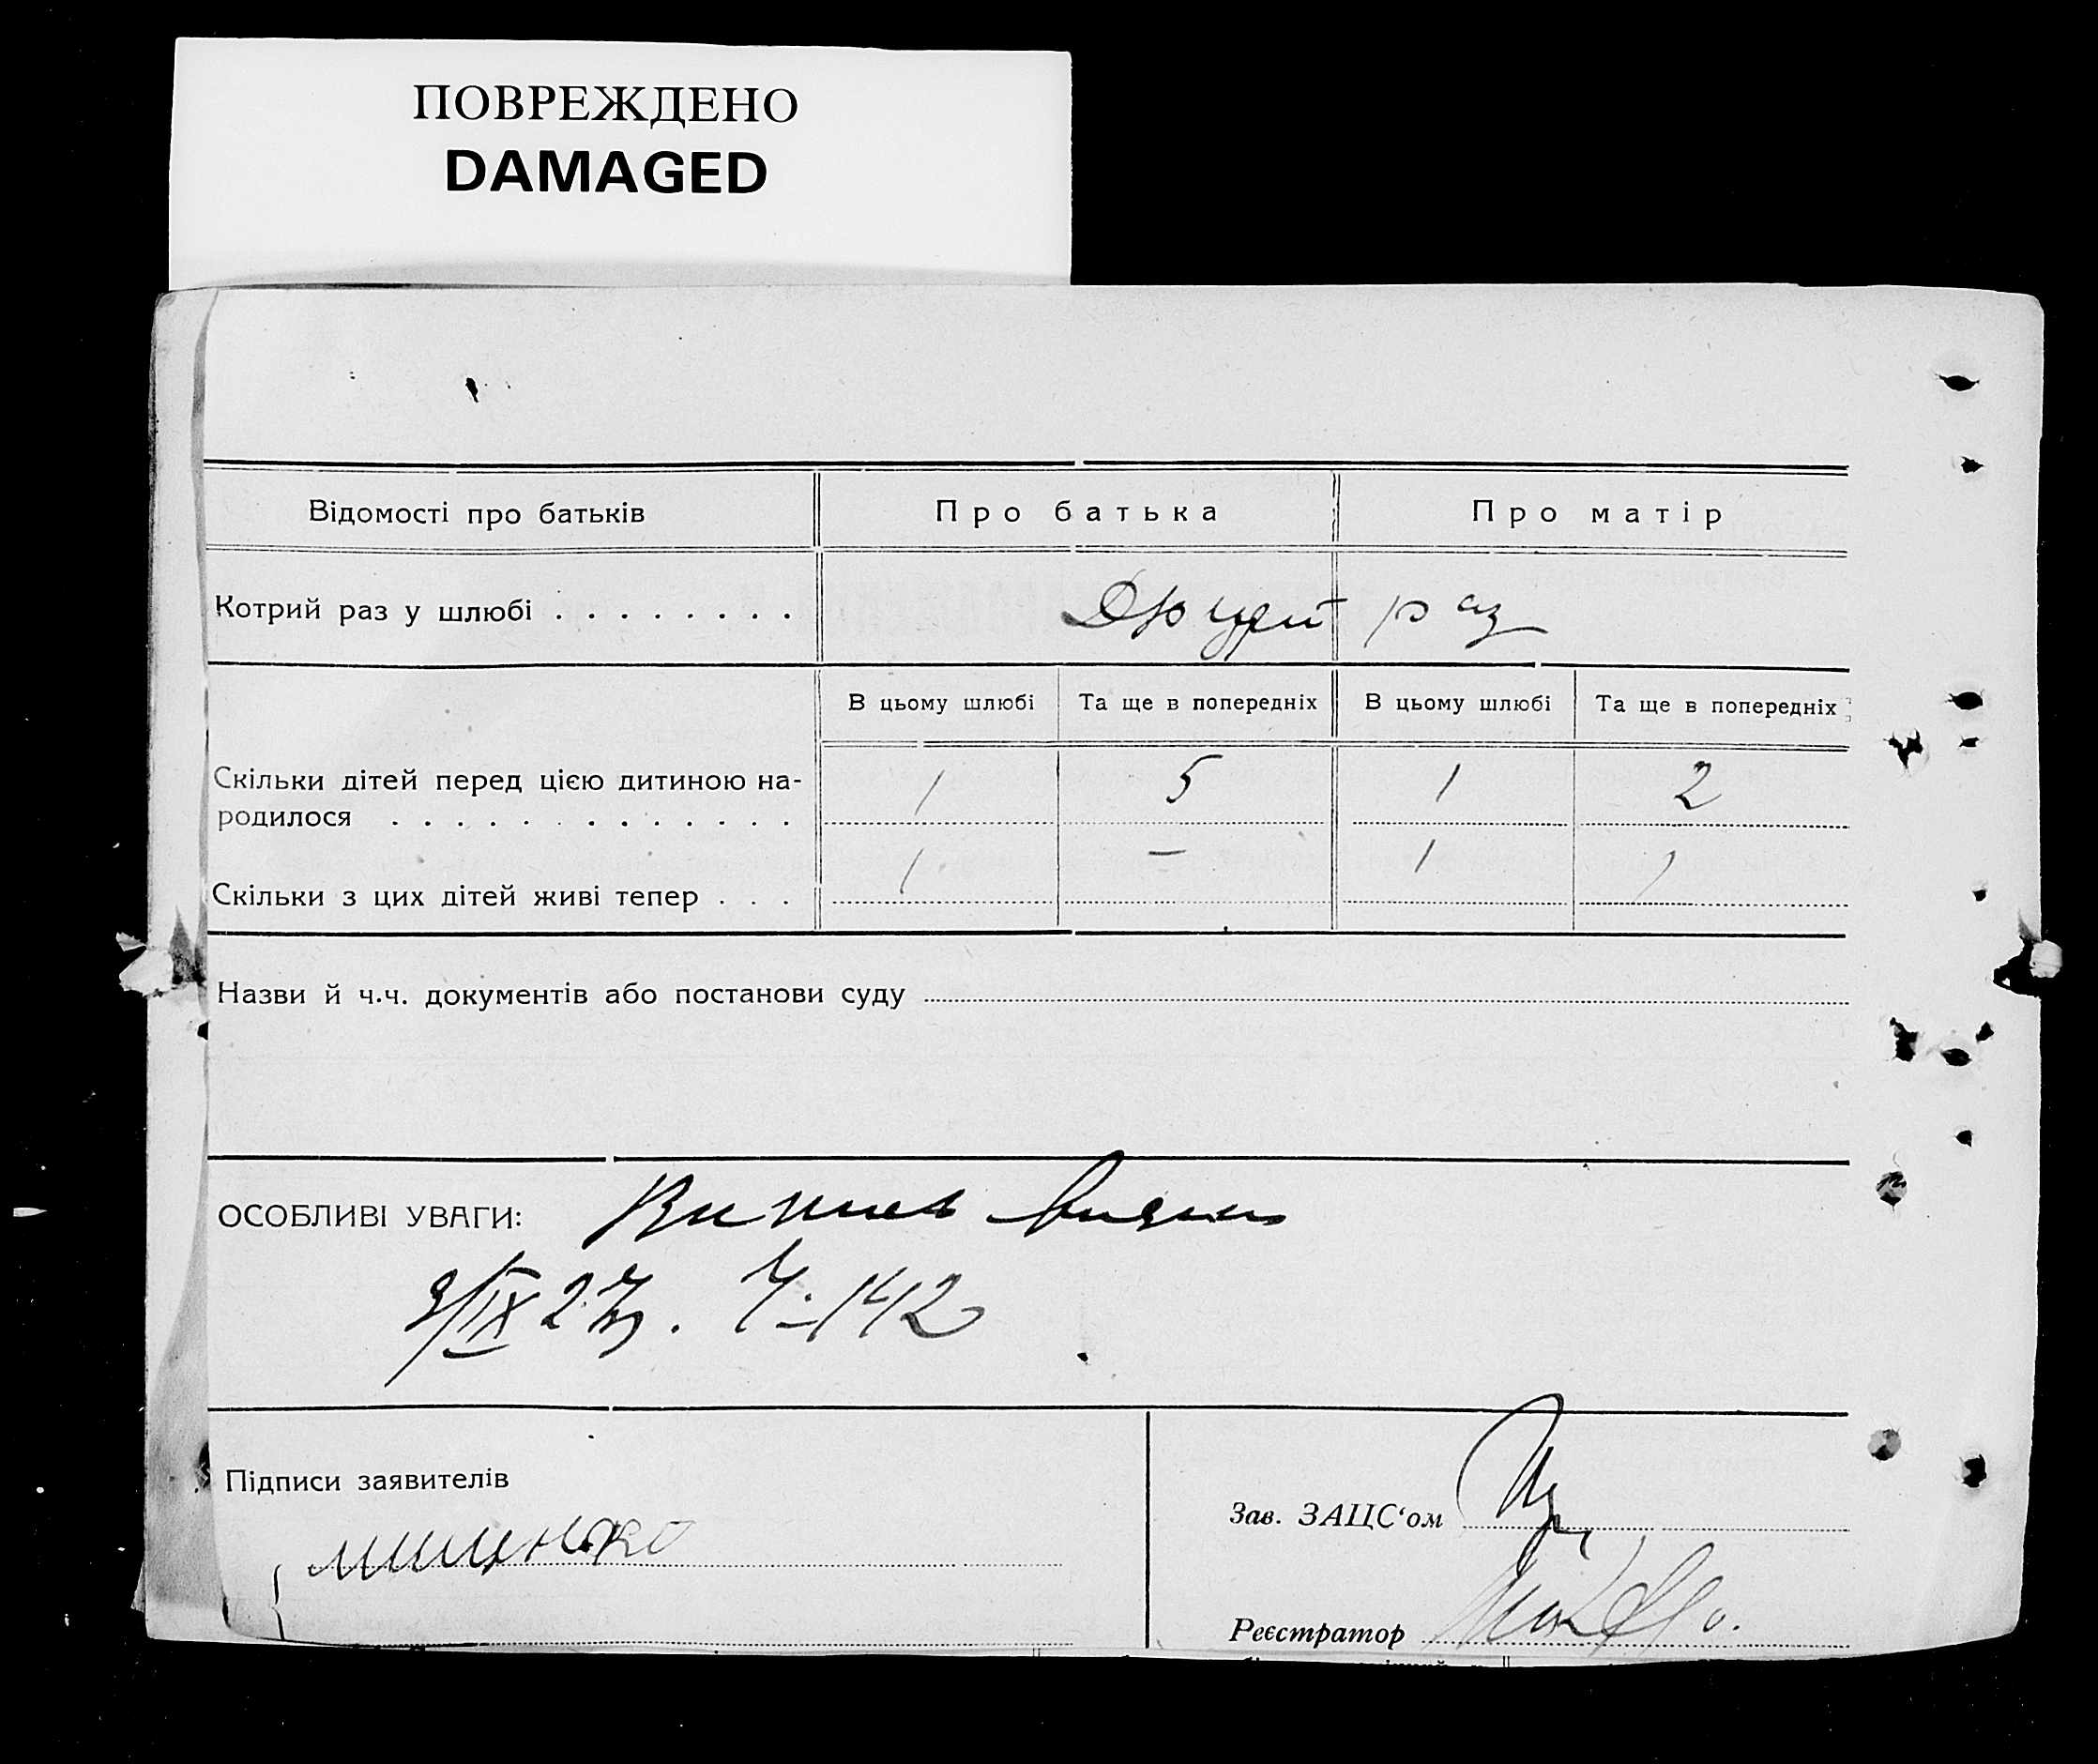 ПОВРЕЖДЕНО
DAMAGED
Відомості про батьків
Про батька
Про матір
Котрий раз у шлюбі . . . . . . . .
Другий раз
В цьому шлюбі
Та ще в попередніх
В цьому шлюбі
Та ще в попередніх
Скільки дітей перед цією дитиною на-
родилося . . . . . . . . . . . . .
1
5
1
2
Скільки з цих дітей живі тепер . . .
1
–
1
1
Назви й ч.ч. документів або постанови суду
ОСОБЛИВІ УВАГИ:
9/IX 27р. Ч. 1412
Підписи заявителів
Мищенко
Зав. ЗАЦС‘ом
Реєстратор